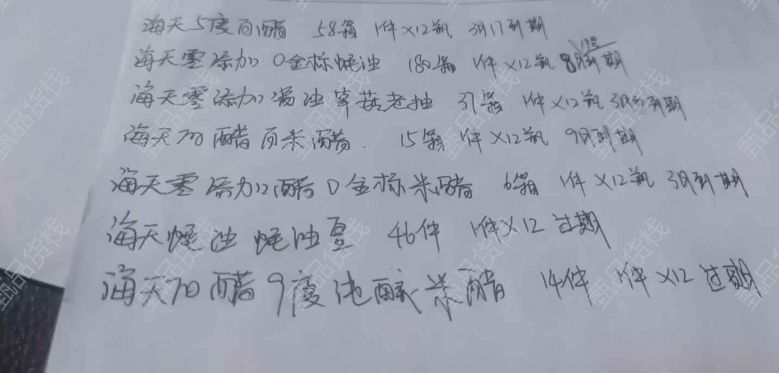 海天5度白醋 58箱 1件×12瓶 3月17到期
海天零添加 0金标蚝油 180箱 1件×12瓶 8月到期
海天零添加酱油草菇老抽 37箱 1件×12瓶 3月到期
海天700醋白米醋. 15箱 1件×12瓶 9月到期
海天零添加醋0金标米醋 6箱 1件×12瓶 3月到期
海天蚝油 蚝油夏 46件 1件×12 过期
海天70醋9度纯酿米醋 14件 1件×12 过期
甄品货栈